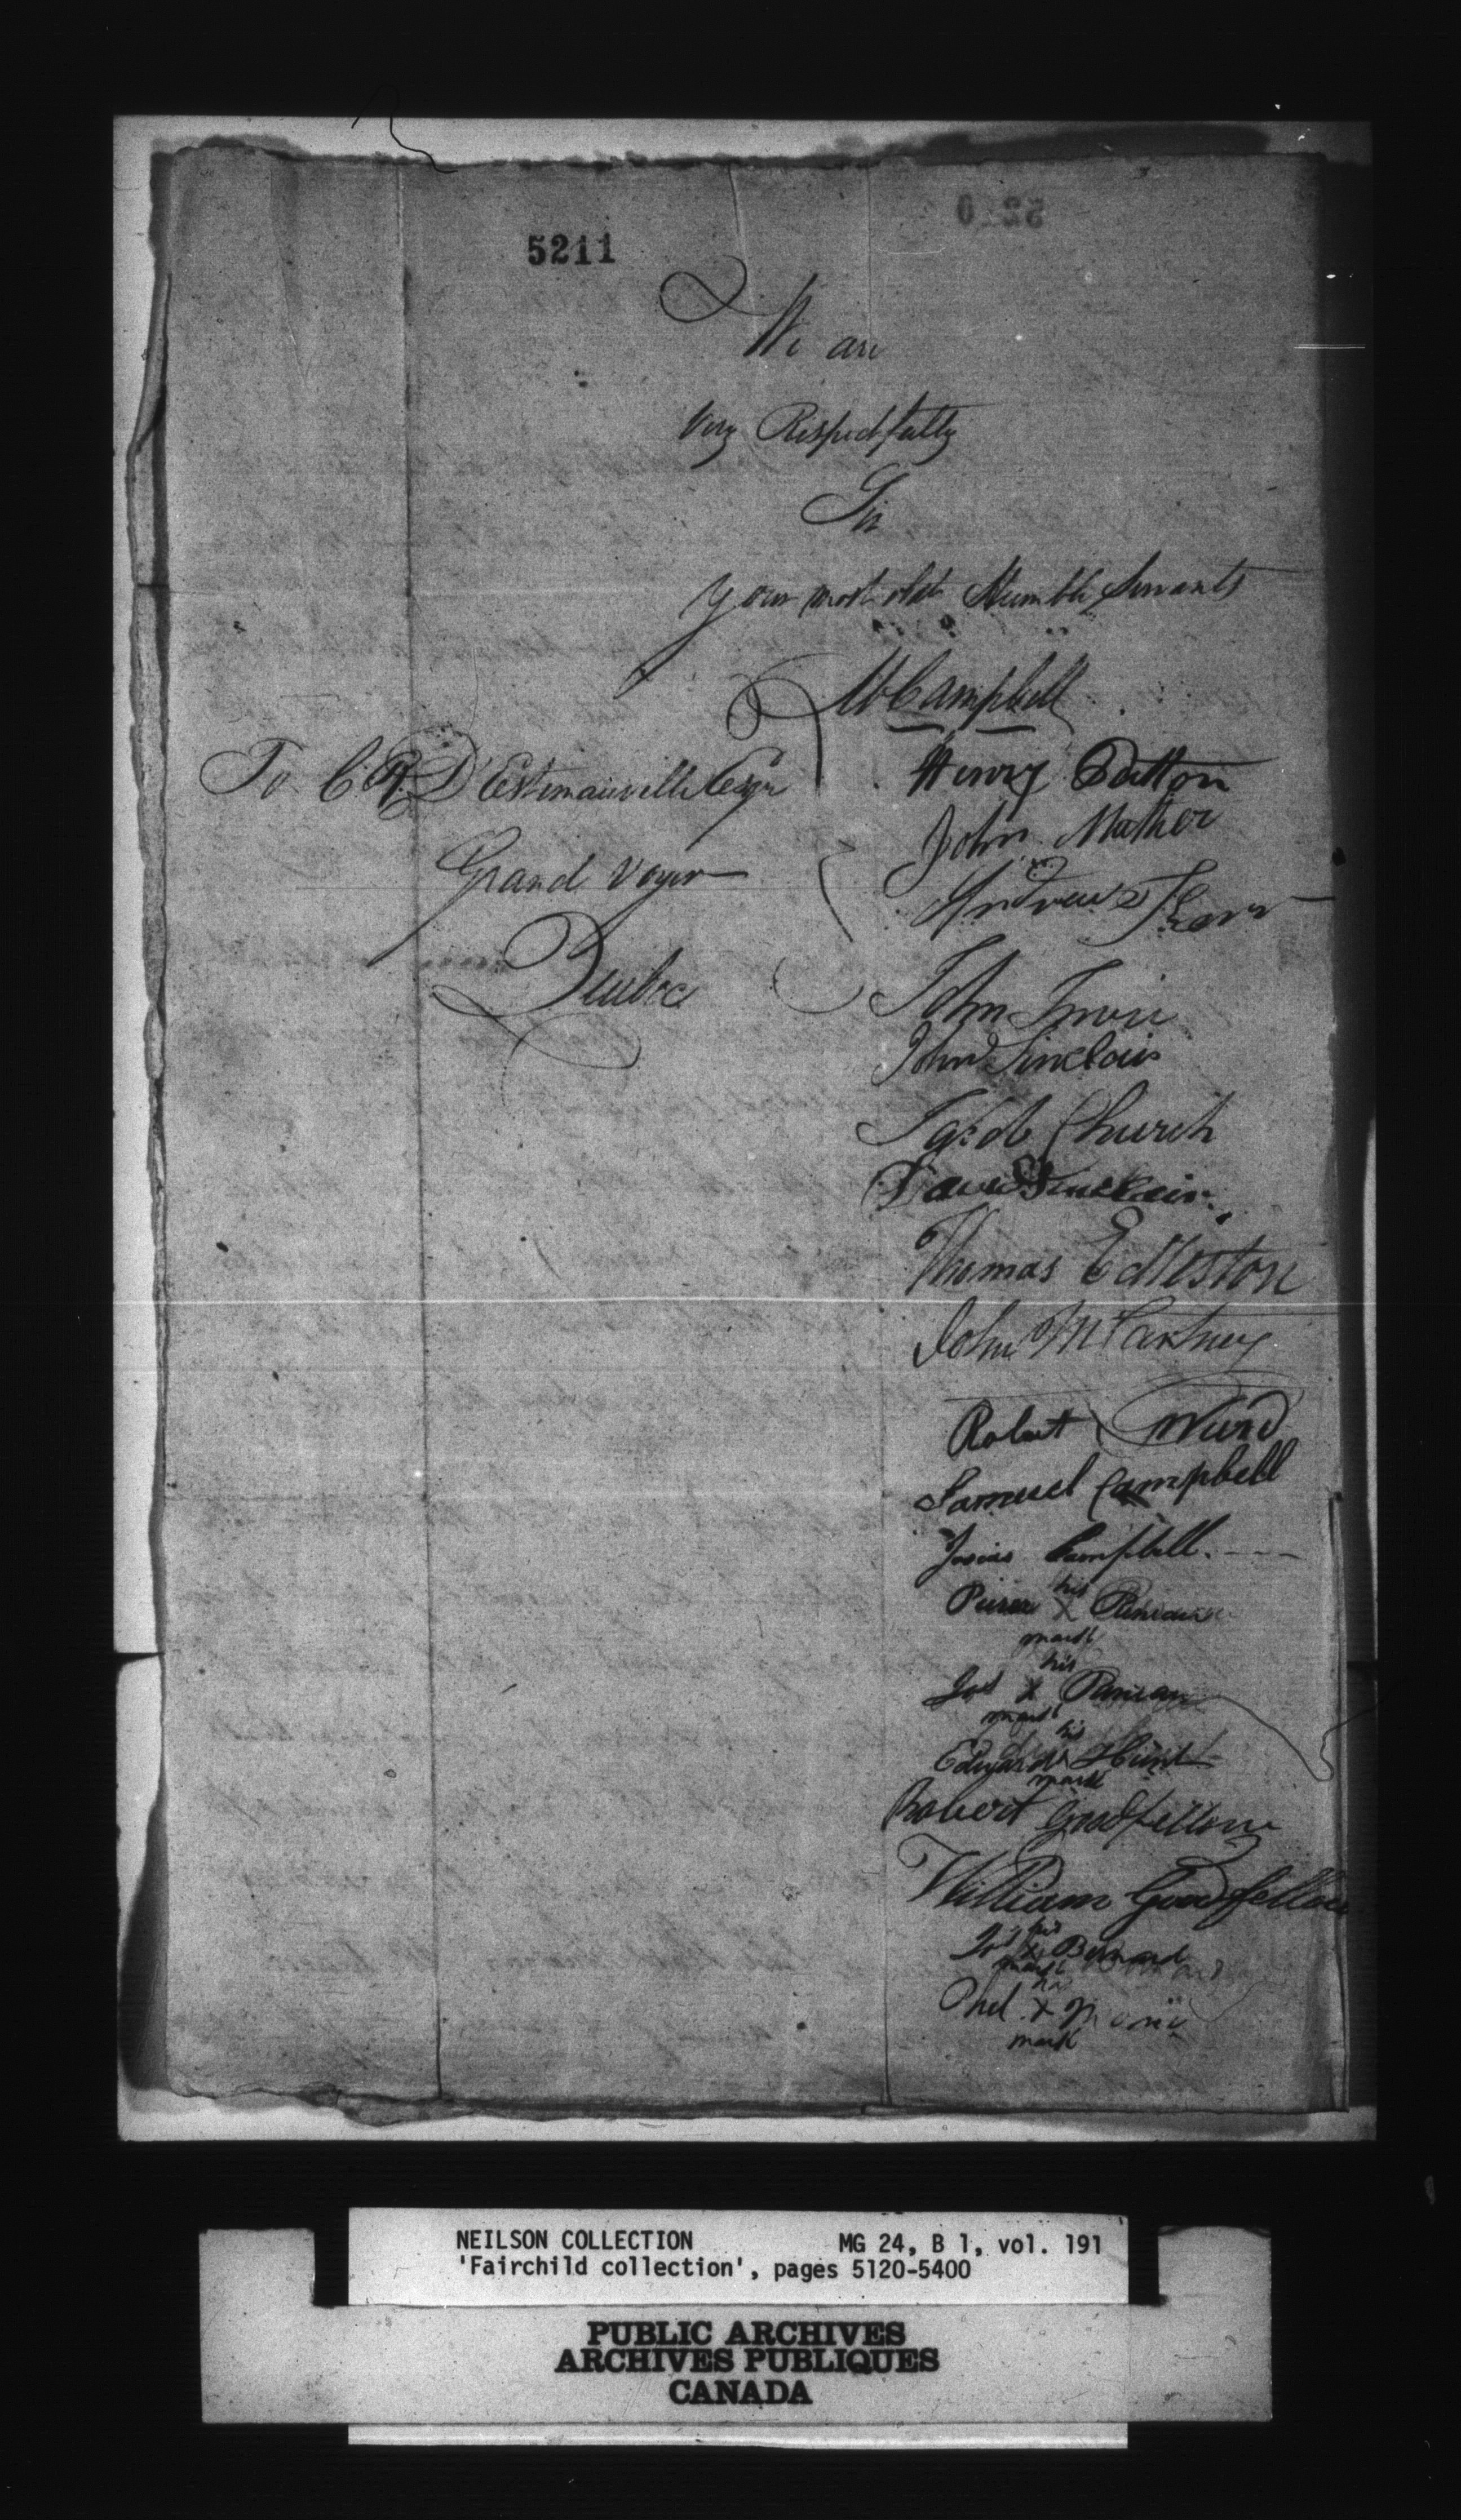 5211
We are
Very Respectfully
Sir
Your most obdt Humble Servants
W Campbell
To C. R. D'Estimauville Esqr
Henry Patton
John Mather
Grand Voyer
Andrew Kerr
Quebec
John Irvin
John Sinclair
Jacob Church
David Sinclair
Thomas Edleston
John McCartney
Robert Ward
Samuel Campbell
Josias Campbell.
his
Pierre X
mark
his
Jos X
mark
his
Edward X Hunt
mark
Robert Goodfellow
William Goodfellow
his
Jos X Bernard
mark
his
X
mark
NEILSON COLLECTION MG 24, B 1, vol. 191
'Fairchild collection', pages 5120-5400
PUBLIC ARCHIVES
ARCHIVES PUBLIQUES
CANADA